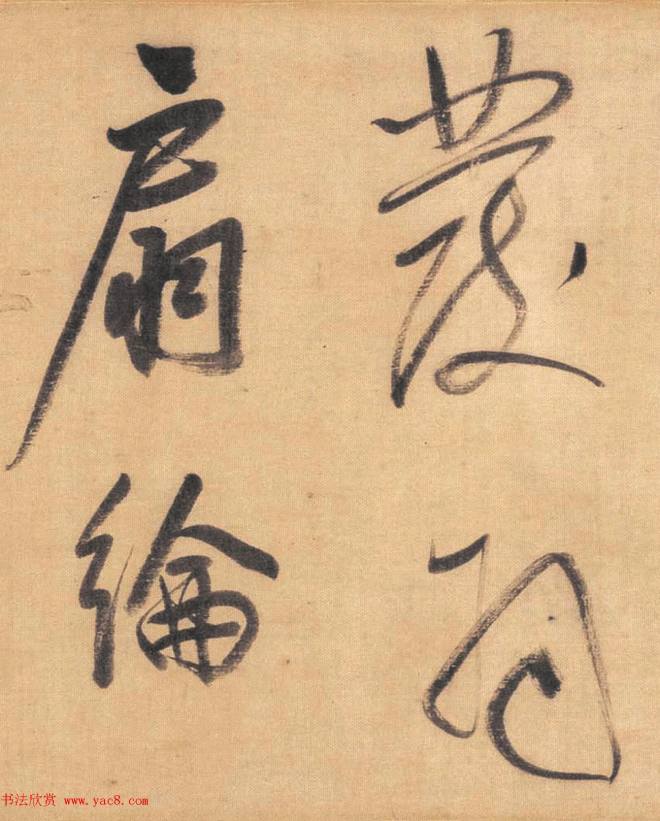 發羽
扇綸
书法欣赏 www.yac8.com